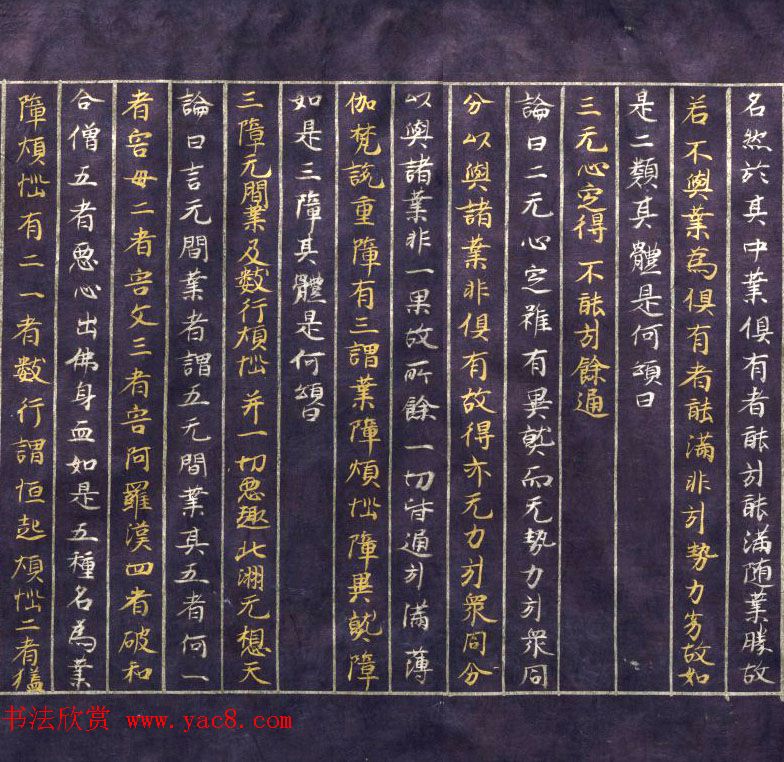 名然於其中業俱有者能引能滿随業勝故
若不與業為俱有者能滿非引勢力劣故如
是二類其體是何頌曰
三无心定得 不能引餘通
論曰二无心定雖有異熟而无勢力引衆同
分以與諸業非俱有故得亦无力引衆同分
以與諸業非一果故所餘一切皆通引滿薄
伽梵說重障有三謂業障煩惱障異熟障
如是三障其體是何頌曰
三障无間業及數行煩惱 并一切惡趣北洲无想天
論曰言无間業者謂五无間業其五者何一
者害母二者害父三者害阿羅漢四者破和
合僧五者惡心出佛身血如是五種名為業
障煩惱有二一者數行謂恒起煩惱二者猛
书法欣赏 www.yac8.com